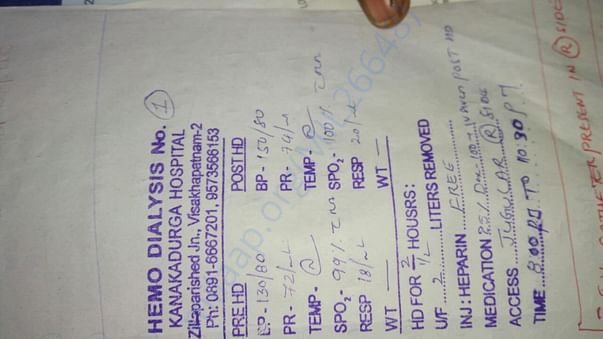 HEMO DIALYSIS No. 1
KANAKADURGA HOSPITAL
Zillaparished Jn., Visakhapatnam-2
Ph: 0891-6667201, 9573566153
PRE HD POST HD
BP - 130/80 BP - 150/80
PR - 72/M PR - 74/M
TEMP - N TEMP - N
SPO2 - 99% SPO2 - 100%
RESP 18/M RESP 20/M
WT — WT —
HD FOR 2 1/2 HOUSRS:
U/F 2 LITERS REMOVED
INJ : HEPARIN FREE
MEDICATION 25% given POST HD
ACCESS JUGULAR R SIDE
TIME 8:00 PM TO 10:30 PM
CATHETER PRESENT IN R SIDE